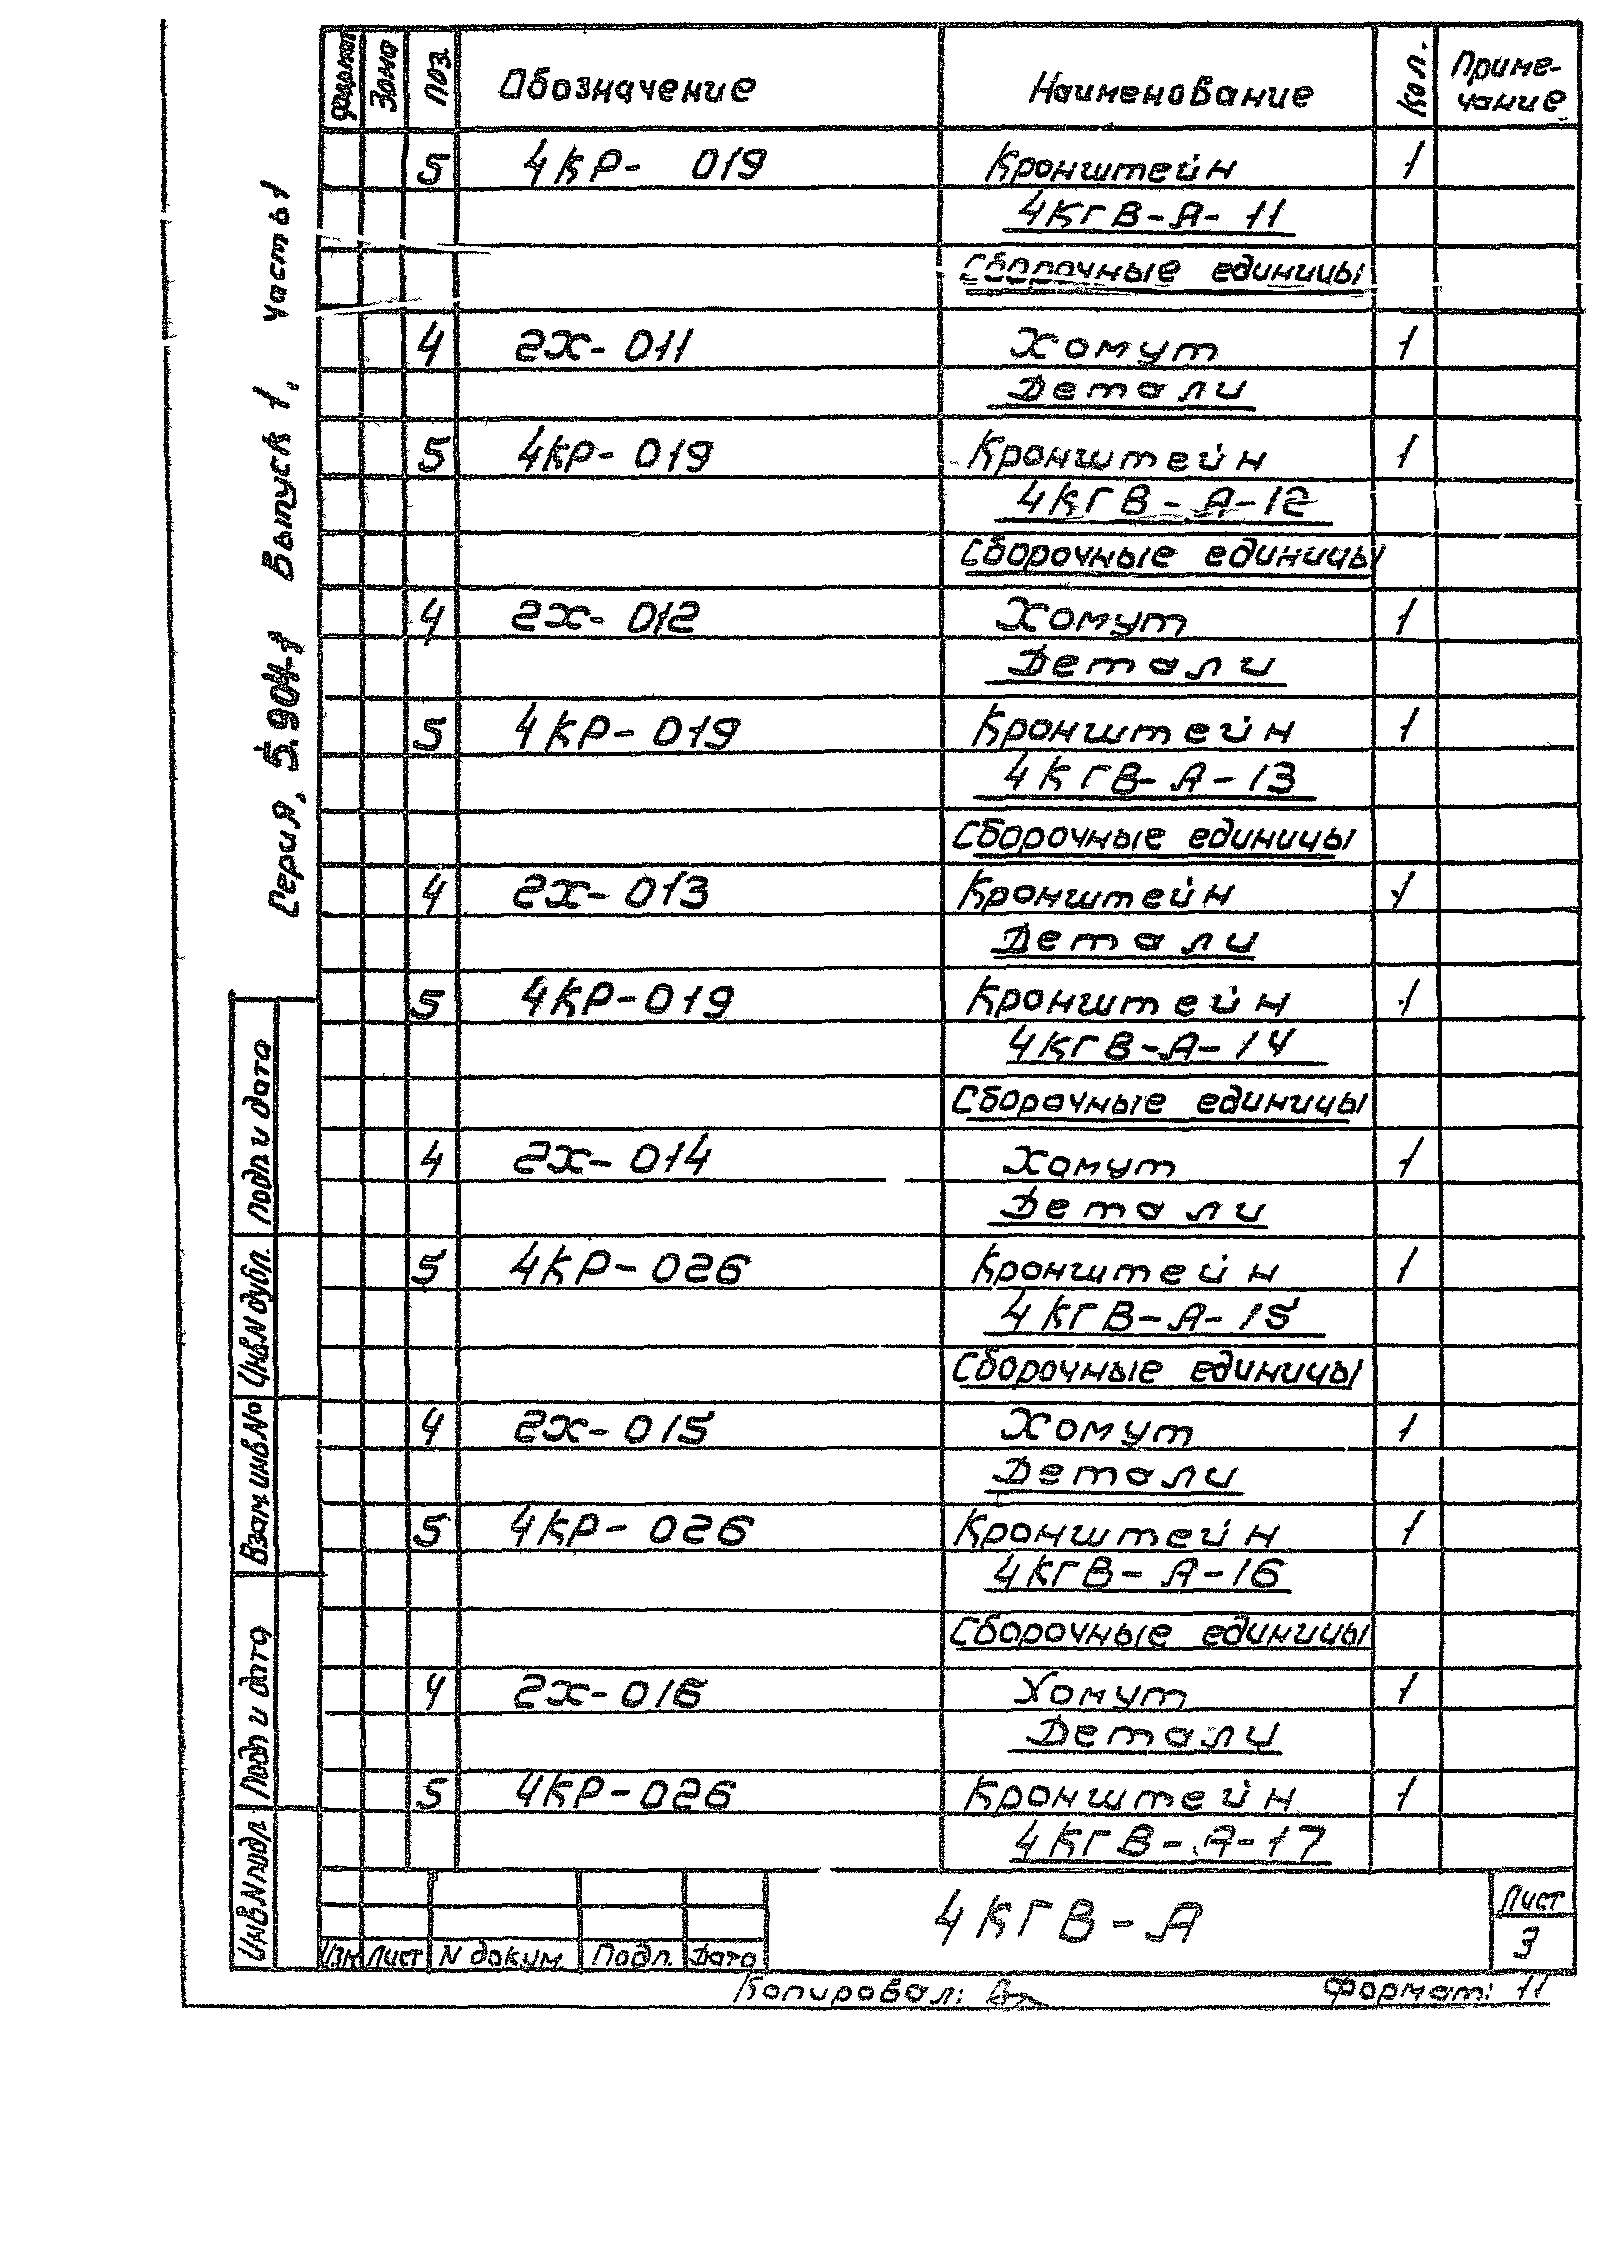 Формат Зона Поз. Обозначение Наименование Кол. Приме-
чание
5 4КР- 019 Кронштейн 1
4КГВ-А-11
Сборочные единицы
4 2Х-011 Хомут 1
Детали
5 4КР-019 Кронштейн 1
4КГВ-А-12
Сборочные единицы
4 2Х-012 Хомут 1
Детали
5 4КР-019 Кронштейн 1
4КГВ-А-13
Сборочные единицы
4 2Х-013 Кронштейн 1
Детали
5 4КР-019 Кронштейн 1
4КГВ-А-14
Сборочные единицы
4 2Х-014 Хомут 1
Детали
5 4КР-026 Кронштейн 1
4КГВ-А-15
Сборочные единицы
4 2Х-015 Хомут 1
Детали
5 4КР-026 Кронштейн 1
4КГВ-А-16
Сборочные единицы
4 2Х-016 Хомут 1
Детали
5 4КР-026 Кронштейн 1
4КГВ-А-17
Изм Лист N докум. Подп. Дата
4КГВ-А
Лист
3
Копировал:
Формат: 11
Серия 5.904-1 Выпуск 1, часть 1
Подп и дата
Инв.N дубл.
Взам инв.№
Подп и дата
Инв N подл